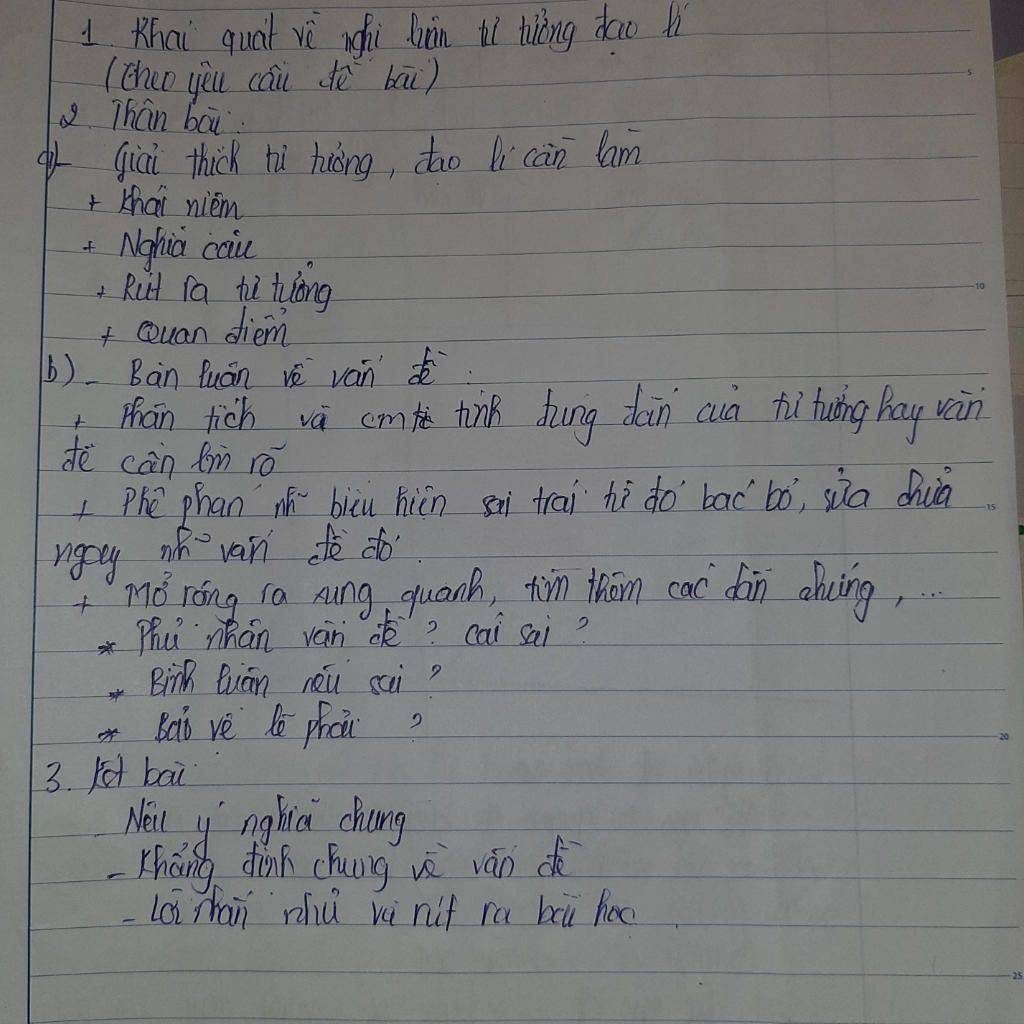 1. Khái quát về nghị luận tư tưởng đạo lí
(theo yêu cầu đề bài)
2. Thân bài:
a)- Giải thích tư tưởng, đạo lí cần làm
+ Khái niệm
+ Nghĩa câu
+ Rút ra tư tưởng
+ Quan điểm
b) - Bàn luận về vấn đề:
+ Phân tích và cm tính đúng đắn của tư tưởng hay vấn
đề cần làm rõ
+ Phê phán nh~ biểu hiện sai trái từ đó bác bỏ, sửa chữa
ngay nh~ vấn đề đó.
+ Mở rộng ra xung quanh, tìm thêm các dẫn chứng, ...
* Phủ nhận vấn đề? cái sai?
* Bình luận nếu sai?
* Bảo vệ lẽ phải?
3. Kết bài
Nêu ý nghĩa chung
- Khẳng định chung về vấn đề
- Lời nhắn nhủ và rút ra bài học
5
10
15
20
25